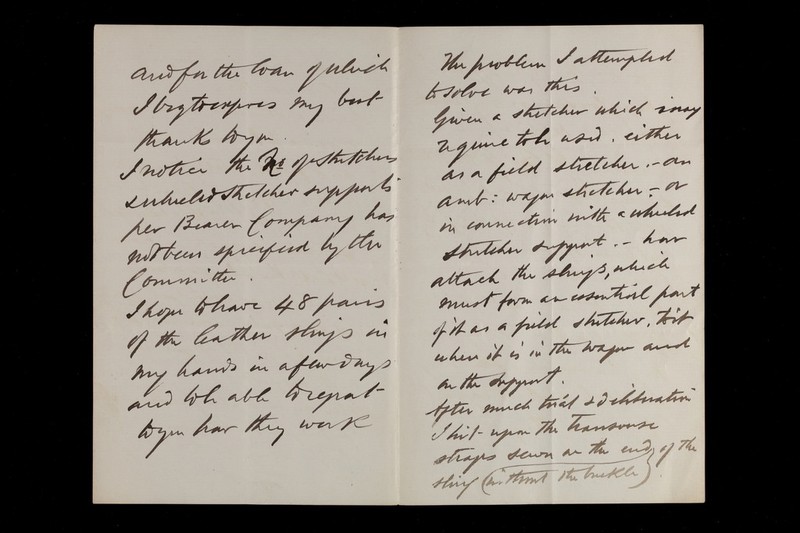 and for the loan of which
I beg to express my best
thanks to you.
I notice the No of stretchers
& wheeled stretcher supports
per Bearer Company has
not been specified by the
Committee.
I hope to have 48 pairs
of the leather slings in
my hands in a few days
and to be able to report
to you how they work
The problem I attempted
to solve was this.
Given a stretcher which may
require to be used. either
as a field stretcher. - an
amb: wagon stretcher - or
in connection with a wheeled
stretcher support. - how
attach the slings, which
must form an essential part
of it as a field stretcher, to it
when it is in the wagon and
on the support.
After much trial & deliberation
I hit upon the transverse
straps sewn on the end of the
sling (without the buckle).